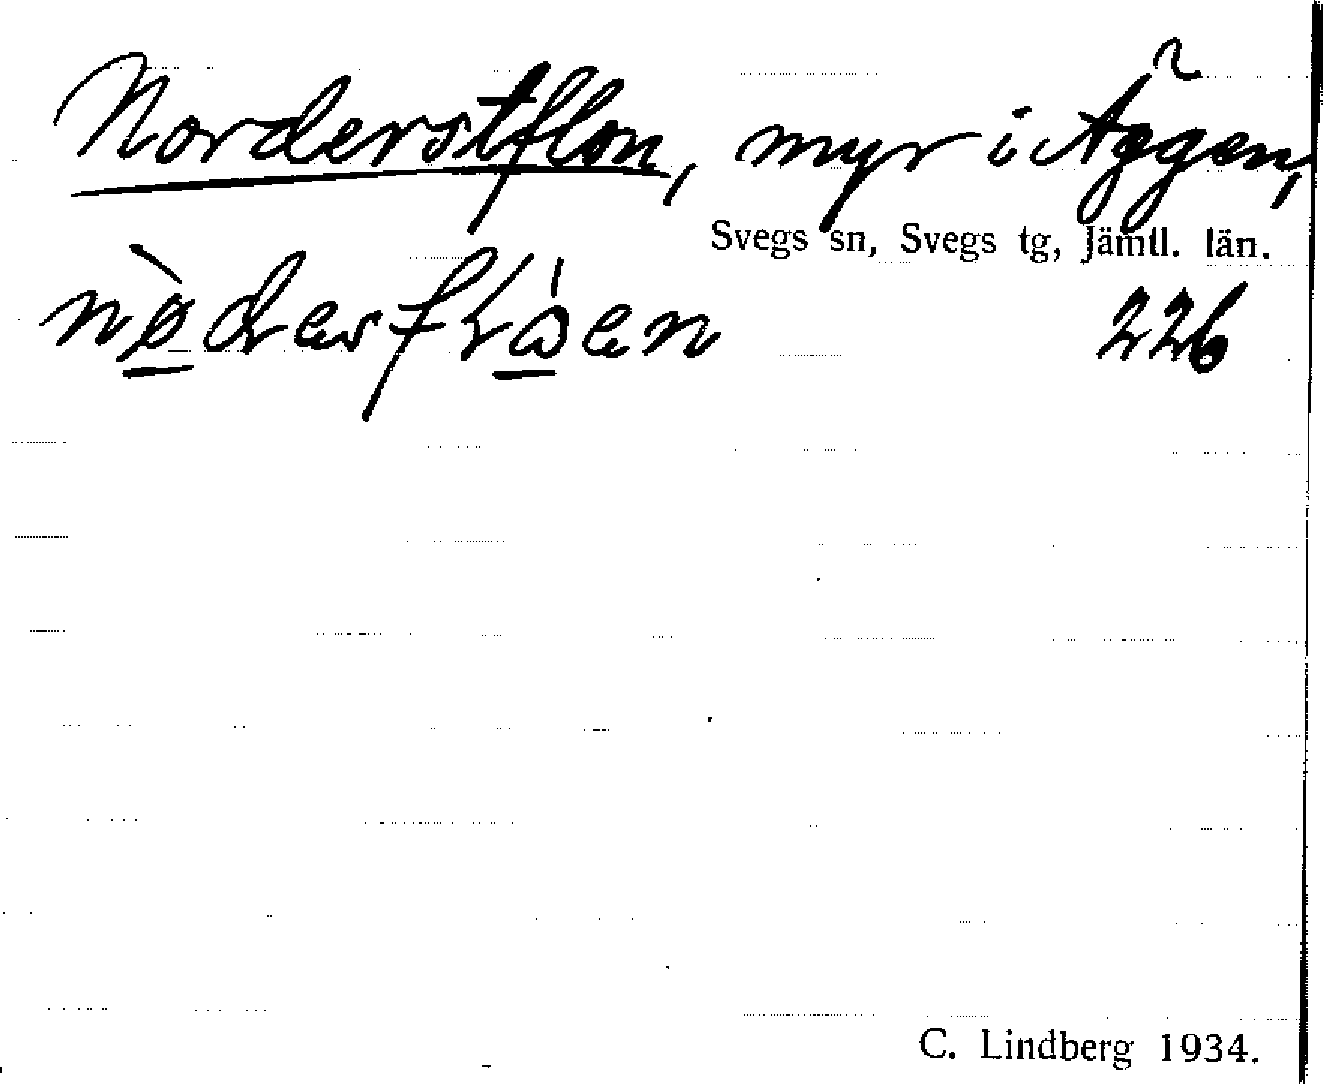 Norderstflon, myr i Äggen,
Svegs sn, Svegs tg, Jämtl. län.
226
C. Lindberg 1934.